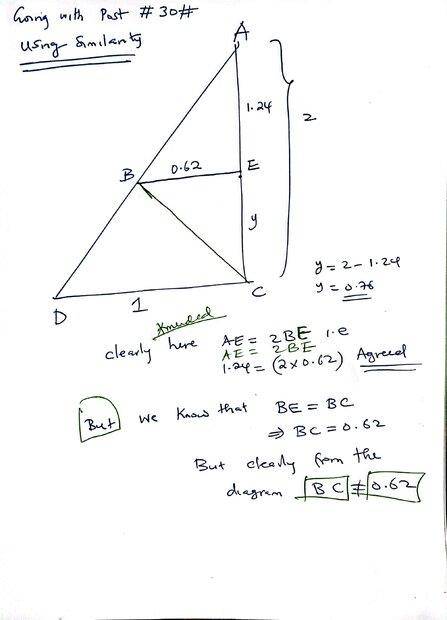 Going with Post # 30#
Using Similarity
A
1.24
2
0.62
B
E
y
y = 2 - 1.24
y = 0.76
D
1
C
Amended
clearly here AE = 2BE i.e
AE = 2BE
1.24 = (2 x 0.62) Agreed
But we know that BE = BC
⇒ BC = 0.62
But clearly from the
diagram BC ≠ 0.62